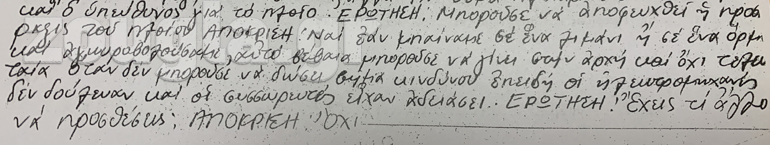 καί ὁ ὑπεύθυνος γιά τό πλοῖο. ΕΡΩΤΗΣΗ: Μποροῦσε νά ἀποφευχθεῖ ἡ προσ
τοῦ πλοίου ΑΠΟΚΡΙΣΗ: Ναί ἐάν μπαίναμε σέ ἕνα λιμάνι ἤ σέ ἕνα ὅρμο
καί ἀγκυροβολούσαμε, αὐτό βέβαια μποροῦσε νά γίνει στήν ἀρχή καί ὄχι τελευ
ταία ὅταν δέν μποροῦσε νά δώσει σῆμα κινδύνου ἐπειδή οἱ ἠλεκτρομηχανές
δέν δούλευαν καί οἱ συσσωρευτές εἶχαν ἀδειάσει. ΕΡΩΤΗΣΗ: Ἔχεις τί ἄλλο
νά προσθέσεις; ΑΠΟΚΡΙΣΗ: Ὄχι